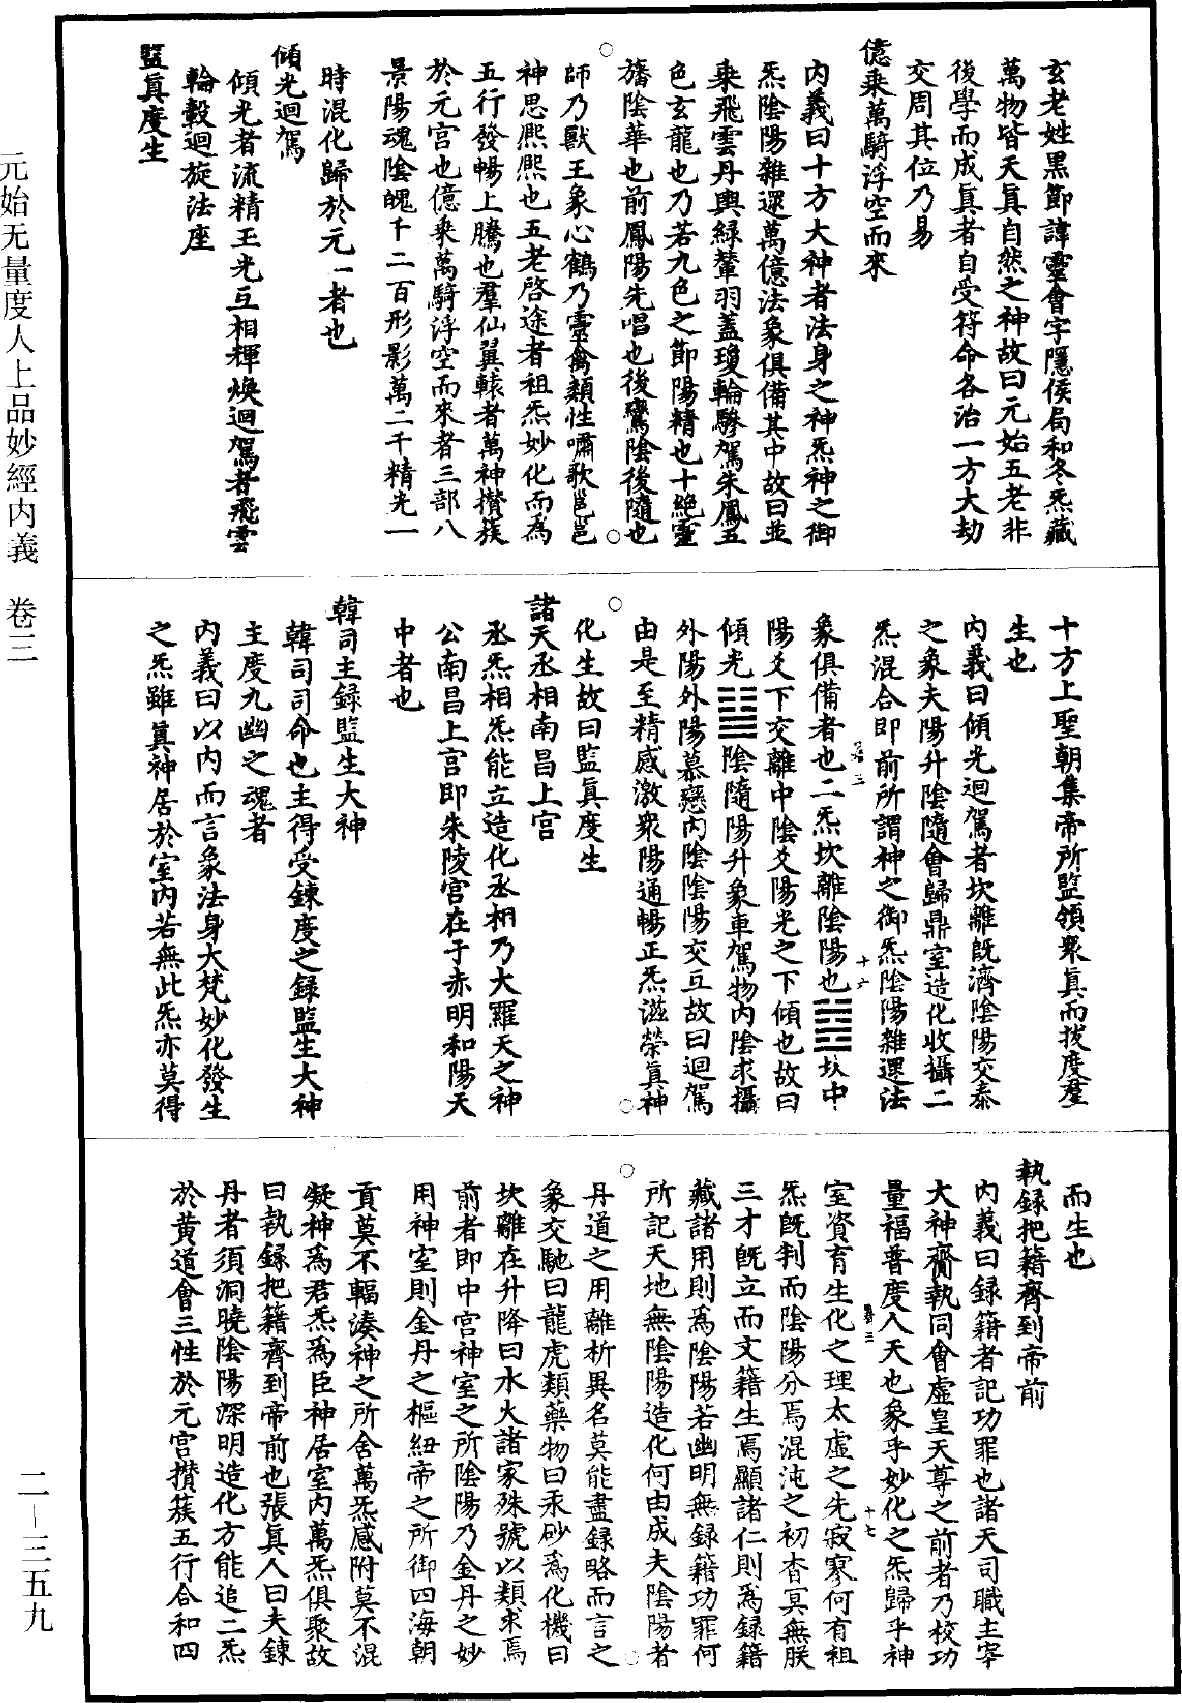 玄老姓黑節諱靈會字隱侯局和冬炁藏
萬物皆天真自然之神故曰元始五老非
後學而成真者自受符命各治一方大劫
交周其位乃易
億乘萬騎浮空而來
內義曰十方大神者法身之神炁神之御
炁陰陽雜還萬億法象俱備其中故曰並
乘飛雲丹輿緑輦羽蓋瓊輪驂駕朱鳳五
色玄龍也乃若九色之節陽精也十絕靈
旛陰華也前鳳陽先唱也後鸞陰後隨也
師乃獸王象心鶴乃靈禽類性嘯歌邕邕
神思熈熈也五老啓途者祖炁妙化而為
五行發暢上騰也羣仙翼轅者萬神攢蔟
於元宮也億乘萬騎浮空而來者三部八
景陽魂陰魄千二百形影萬二千精光一
時混化歸於元一者也
傾光迴駕
傾光者流精玉光互相輝煥迴駕者飛雲
輪轂迴旋法座
監真度生
十方上聖朝集帝所監領衆真而拔度羣
生也
內義曰傾光迴駕者坎離旣濟隂陽交泰
之象夫陽升陰隨會歸鼎室造化收攝二
炁混合即前所謂神之御炁陰陽雜還法
象俱備者也二炁坎離陰陽也䷾坎中
陽爻下交離中陰爻陽光之下傾也故曰
傾光䷾陰隨陽升象車駕物內陰求攝
外陽外陽慕戀內陰陰陽交互故曰迴駕
由是至精感激衆陽通暢正炁滋榮真神
化生故曰監真度生
諸天丞相南昌上宮
丞炁相炁能立造化丞相乃大羅天之神
公南昌上宮即朱陵宮在于赤明和陽天
中者也
韓司主録監生大神
韓司司命也主得受鍊度之録監生大神
主度九幽之魂者
內義曰以內而言象法身大梵妙化發生
之炁雖真神居於室內若無此炁亦莫得
而生也
執録把籍齊到帝前
內義曰録籍者記功罪也諸天司職主宰
大神齊執同會虛皇天尊之前者乃校功
量福普度人天也象乎妙化之炁歸乎神
室資育生化之理太虛之先寂寥何有祖
炁旣判而陰陽分焉混沌之初杳冥無朕
三才旣立而文籍生焉顯諸仁則為録籍
藏諸用則為陰陽若幽明無録籍功罪何
所記天地無陰陽造化何由成夫陰陽者
丹道之用離析異名莫能盡録略而言之
象交馳曰龍虎類藥物曰汞砂為化機曰
坎離在升降曰水火諸家殊號以類求焉
前者即中宮神室之所陰陽乃金丹之妙
用神室則金丹之樞紐帝之所御四海朝
貢莫不輻湊神之所舍萬炁感附莫不混
凝神為君炁為臣神居室內萬炁俱聚故
曰執録把籍齊到帝前也張真人曰夫鍊
丹者須洞曉陰陽深明造化方能追二炁
於黄道會三性於元宮攢蔟五行合和四
卷三
十六
卷三
十七
元始无量度人上品妙經內義　卷三
二—三五九